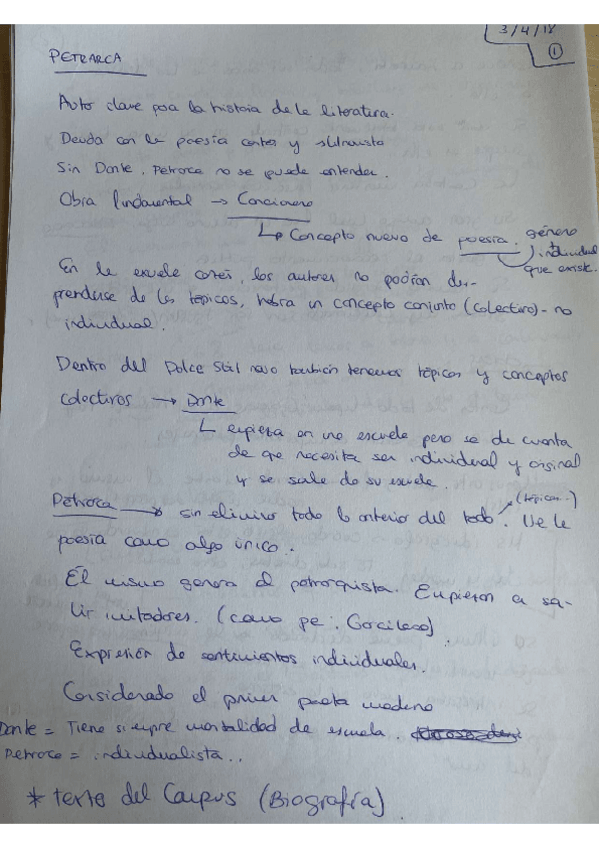 3/4/18
1
PETRARCA
Autor clave para la historia de la literatura.
Deuda con la poesía cortés y stilnovista
Sin Dante, Petrarca no se puede entender.
Obra fundamental → Cancionero
↳ Concepto nuevo de poesía. género individual que existe.
En la escuela cortés, los autores no podían des-
prenderse de los tópicos, había un concepto conjunto (colectivo) - no
individual.
Dentro del Dolce Stil novo también tenemos tópicos y conceptos
colectivos → Dante
↳ empieza en una escuela pero se da cuenta
de que necesita ser individual y original
y se sale de su escuela.
Petrarca → sin eliminar todo lo anterior del todo. (tópicos..) Ve la
poesía como algo único.
Él mismo genera el petrarquista. Empiezan a sa-
lir imitadores. (como pe: Garcilaso)
Expresión de sentimientos individuales.
Considerado el primer poeta moderno
Dante = Tiene siempre mentalidad de escuela.
Petrarca = individualista..
* texto del Campus (Biografía)